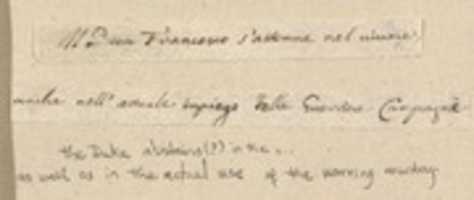 Francesco s'astenne nel
anche nell' attuale impiego delle Guerdie Campagne
the Duke abstains (?) in the ...
as well as in the actual use of the warning